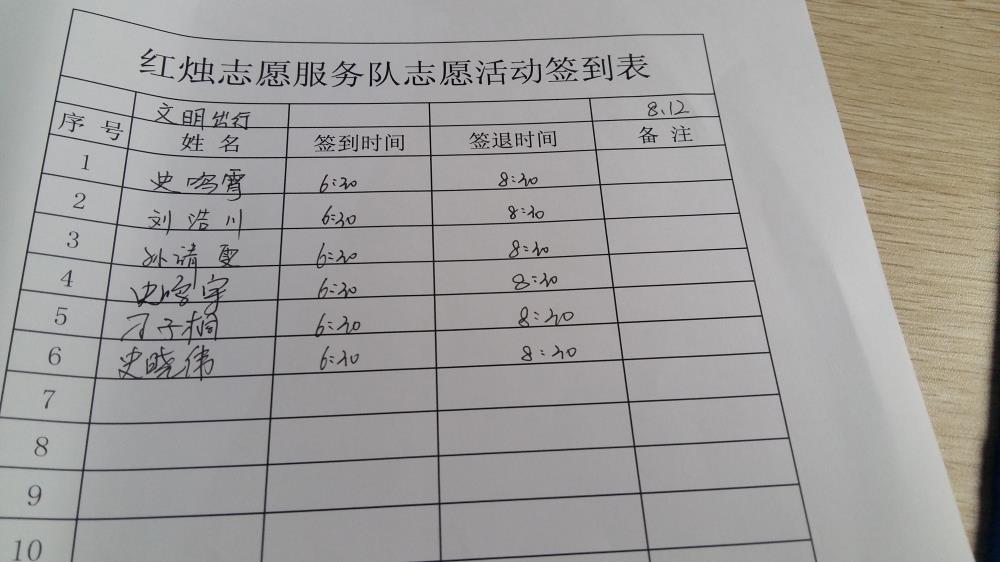 红烛志愿服务队志愿活动签到表
文明出行 8.12
序号 姓名 签到时间 签退时间 备注
1 史鸣霄 6:30 8:30
2 刘浩川 6:30 8:30
3 孙靖雯 6:30 8:30
4 史 宇 6:30 8:30
5 刁子桐 6:30 8:30
6 史晓伟 6:30 8:30
7
8
9
10